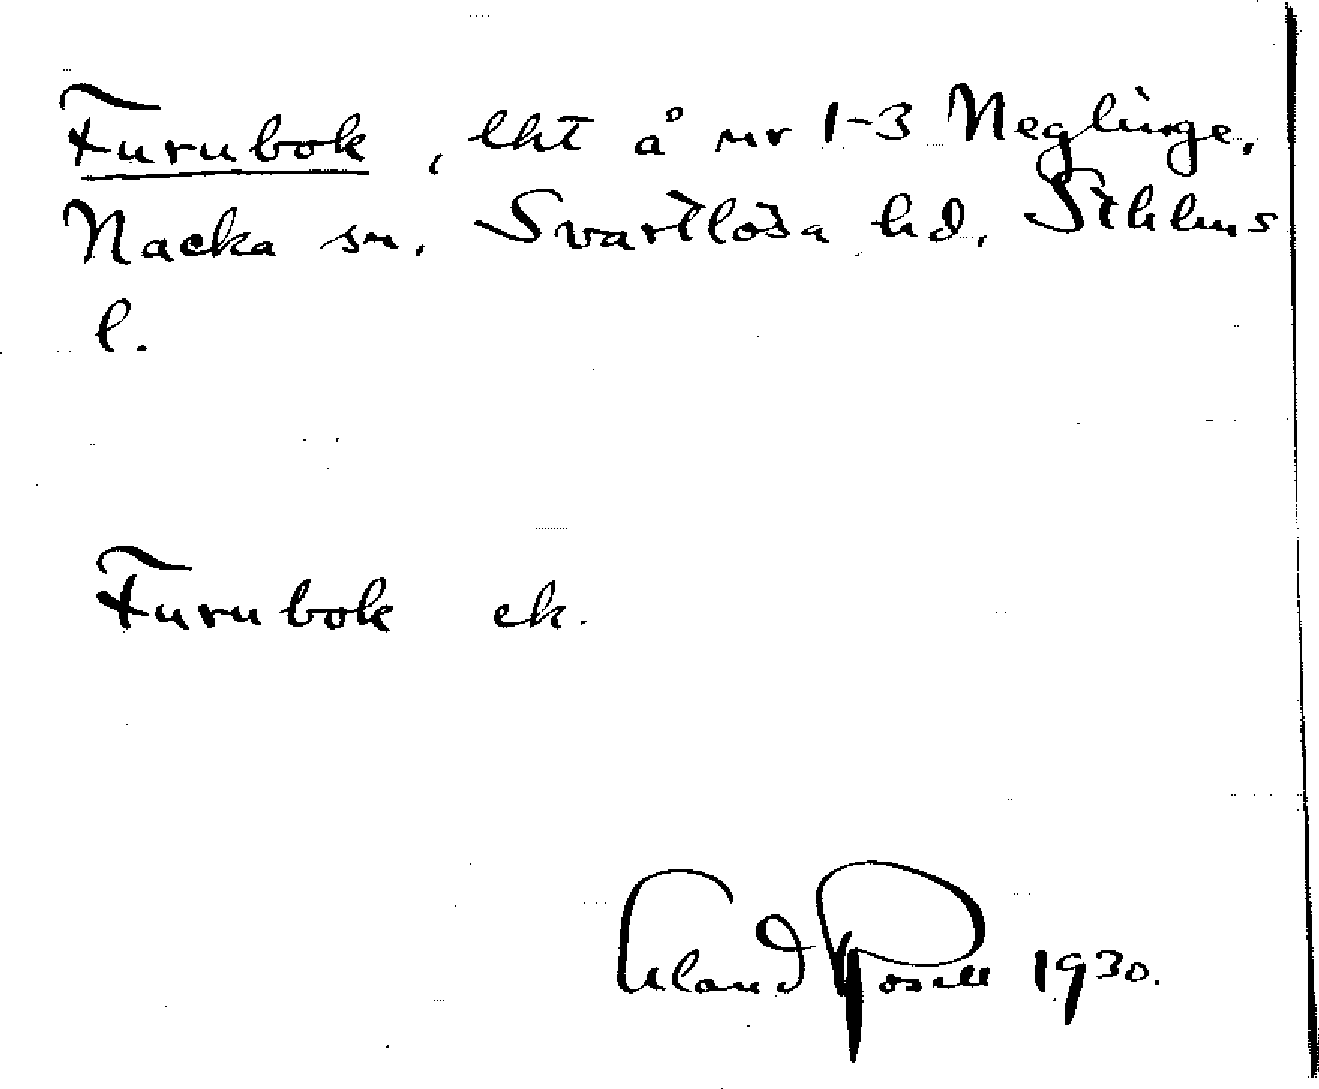 Furubok, lht å nr 1-3 Neglinge,
Nacka sn. Svartlösa hd. Sthlms
l.
Furubok ek.
Erland Rosell 1930.